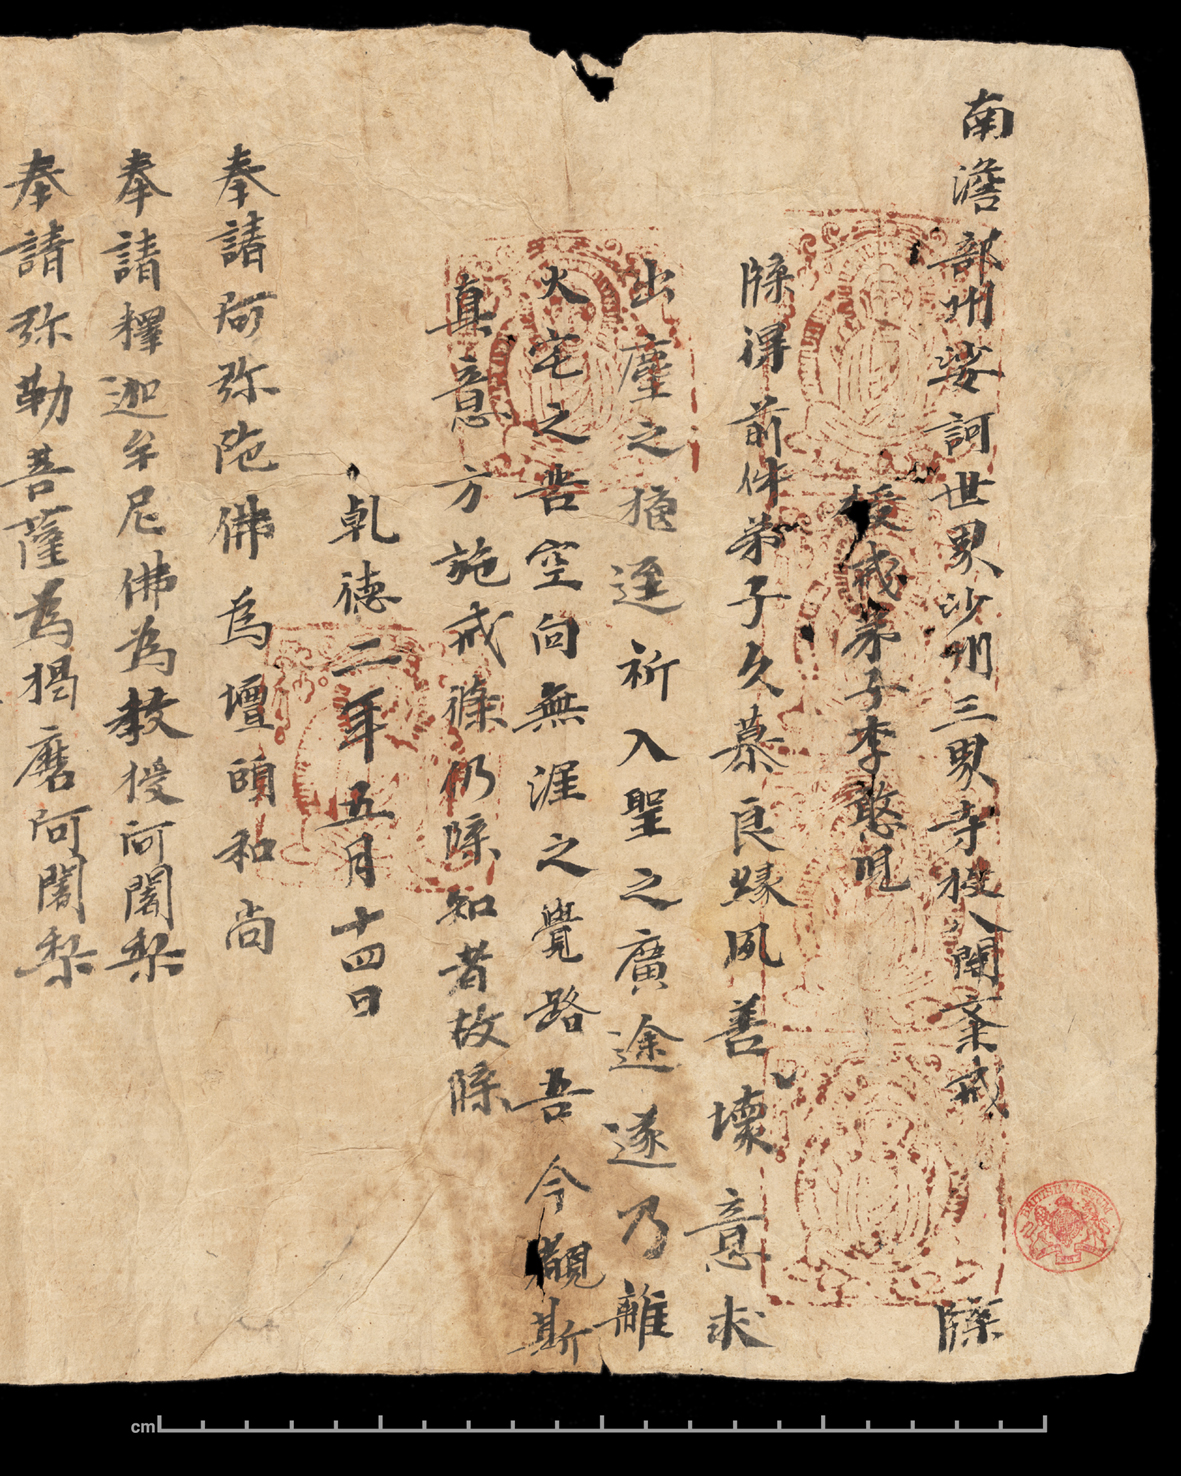 南澹部州娑訶世界沙州三界寺授八關齋戒 牒
授戒弟子李憨兒
牒得前件弟子久慕良緣夙善壞意求
出塵之 逕祈入聖之廣途遂乃離
火宅之苦空向無涯之覺路吾今覩斯
真意方施戒牒仍牒知者故牒
乹德二年五月十四日
奉請阿弥陁佛為壇頭和尚
奉請釋迦牟尼佛為教授阿闍梨
奉請弥勒菩薩為羯磨阿闍梨
BRITISH MUSEUM
cm